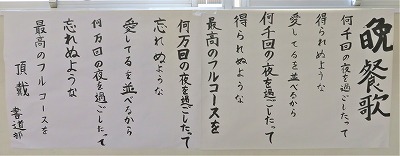 晩餐歌
何千回の夜を過ごしたって
得られぬような
愛してるを並べるから
何千回の夜を過ごしたって
得られぬような
最高のフルコースを
何万回の夜を過ごしたって
忘れぬような
愛してるを並べるから
何万回の夜を過ごしたって
忘れぬような
最高のフルコースを
頂戴
書道部